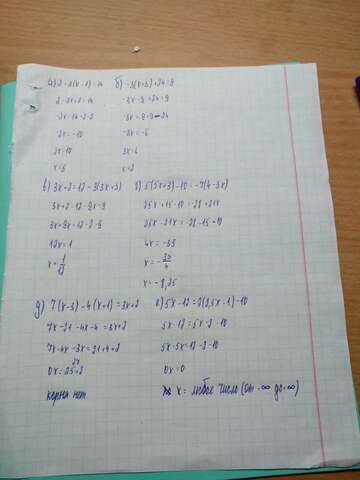 а) 2 - 2(x - 1) = 14
2 - 2x + 2 = 14
-2x = 14 - 2 - 2
2x = -10
x = 5
б) -3(x+3)+24=9
-3x - 9 + 24 = 9
3x = 6
x = 2
в) 3x+2=12-3(3x+3)
3x+2=12-9x-9
3x+9x=12-2-9
12x=1
x = 1/12
г) 5(5x+3)-10=-7(4-3x)
25x+15-10=-28+21x
25x-21x=-28-15+10
4x=-33
x = -33/4
x = -8,25
д) 7(x-3)-4(x+1)=3x+2
7x-21-4x-4=3x+2
7x-4x-3x=21+4+2
0x=25+2
27
корня нет
е) 5x-12=2(2,5x-1)-10
5x-12=5x-2-10
5x-5x=12-2-10
0x=0
x = любое число (от -∞ до +∞)